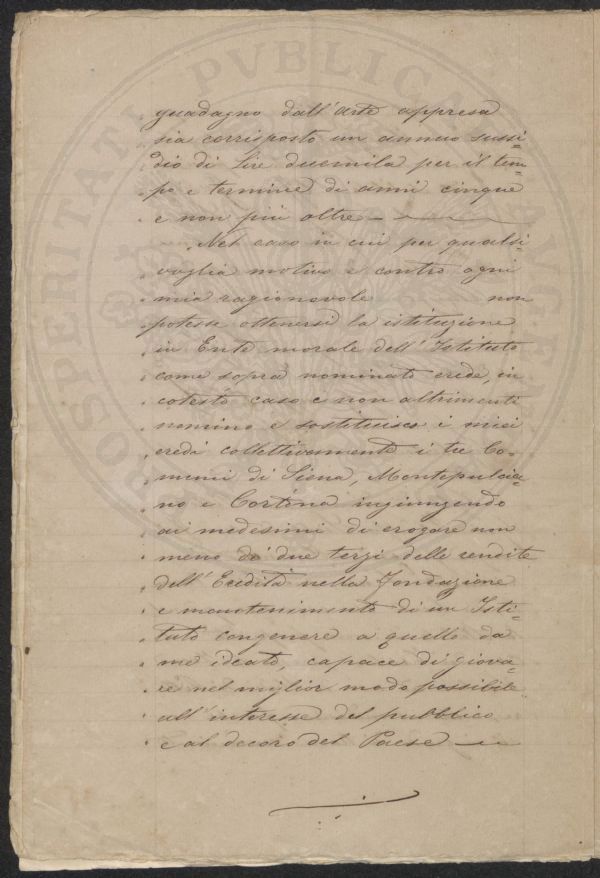 PROSPERITATI PVBLICAE AVGENDAE
guadagno dall'arte appresa
sia corrisposto un annuo sussi-
dio di Lire duemila per il tem-
po e termine di anni cinque
e non più oltre —
Nel caso in cui per qualsi-
voglia motivo e contro ogni
mia ragionevole non
potesse ottenersi la istituzione
in Ente morale dell'Istituto
come sopra nominato erede, in
cotesto caso e non altrimenti
nomino e sostituisco i miei
eredi collettivamente i tre Co-
muni di Siena, Montepulcia-
no e Cortona ingiungendo
ai medesimi di erogare non
meno di due terzi delle rendite
dell'Eredità nella fondazione
e mantenimento di un Isti-
tuto congenere a quello da
me ideato, capace di giova-
re nel miglior modo possibile
all'interesse del pubblico
e al decoro del Paese —